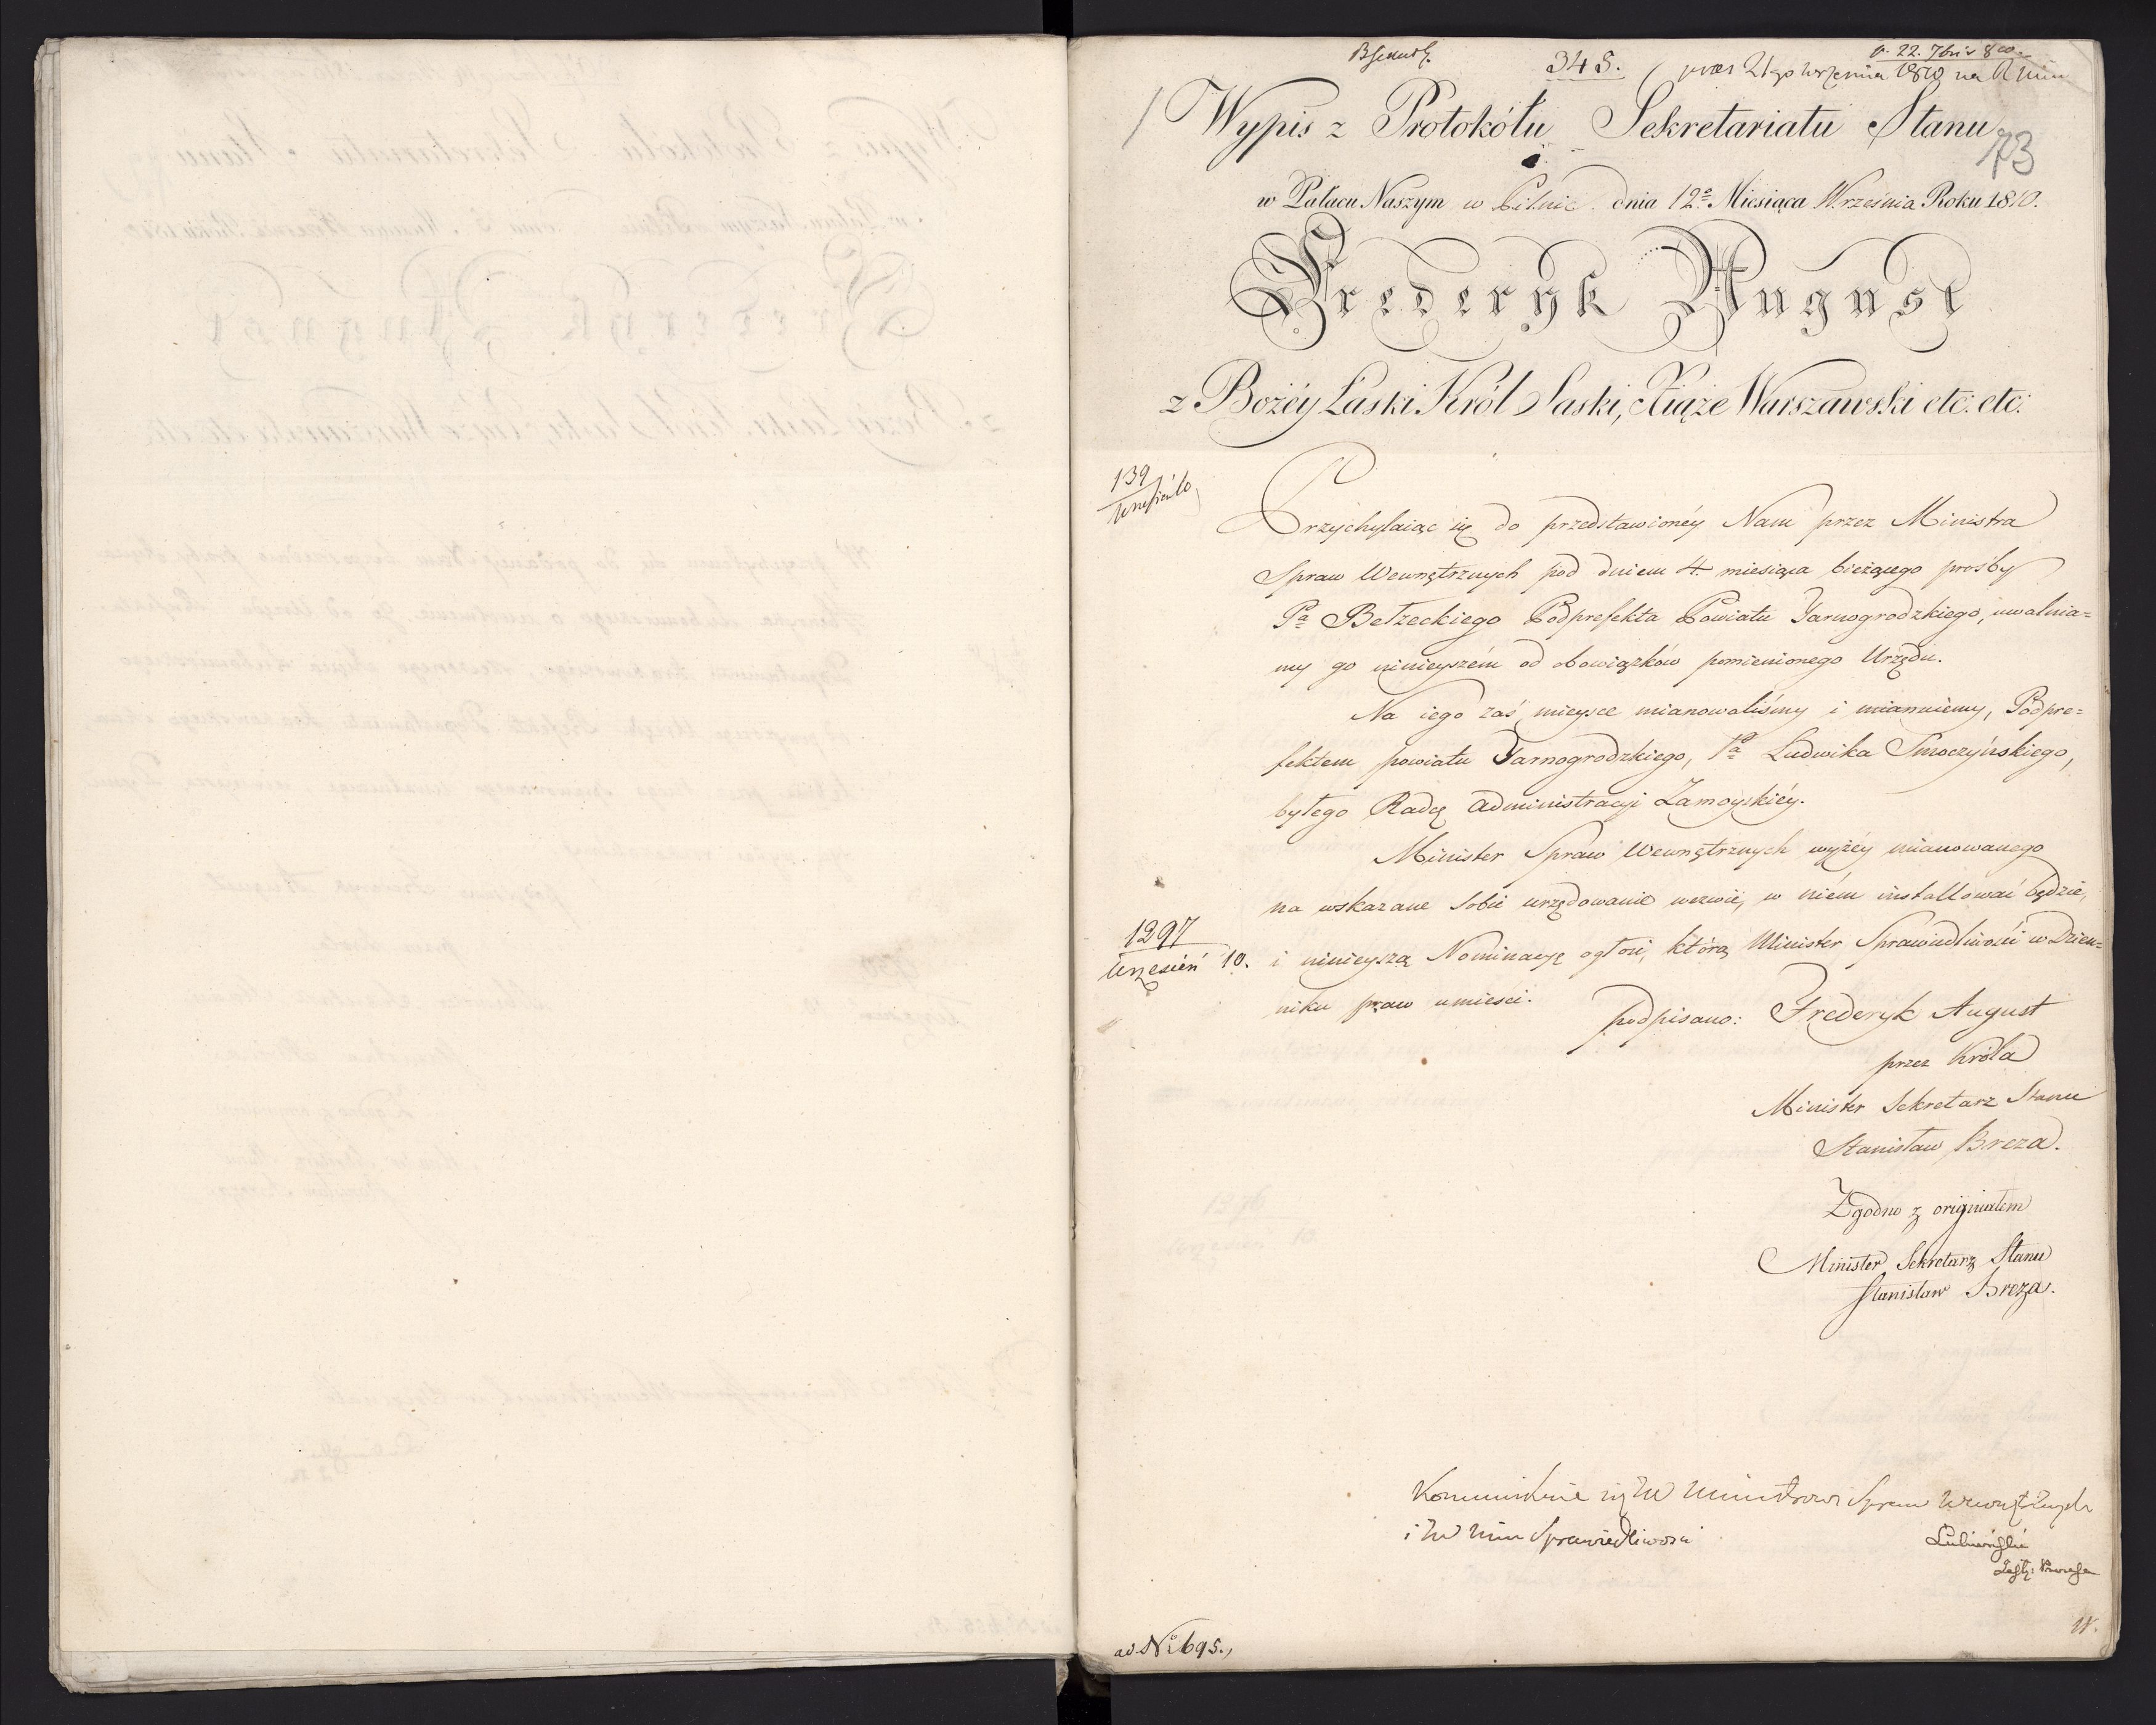 348.
a. 22. 7bris 810.
21go września 1810 na R Min
Wypis z Protokółu Sekretariatu Stanu
73
w Pałacu Naszym w Pilnic dnia 12º Miesiąca Września Roku 1810.
Frederyk August
z Bożéy Łaski Król Saski, Xiąże Warszawski etc: etc:
139
Przychylaiąc się do przedstawionéy Nam przez Ministra
Spraw Wewnętrznych pod dniem 4. miesiąca bieżącego prośby
Pa Bełzeckiego Podprefekta Powiatu Tarnogrodzkiego, uwalnia=
my go ninieyszém od obowiązków pomienionego Urzędu.
Na iego zaś mieysce mianowaliśmy i mianuiemy, Podpre=
fektem powiatu Tarnogrodzkiego, Pa Ludwika Smoczyńskiego,
byłego Radcę Administracyi Zamoyskiéy.
Minister Spraw Wewnętrznych wyżéy mianowanego
na wskazane sobie urzędowanie wezwie, w niém installować będzie,
1297
Wrzesień 10.
i ninieyszą Nominacyę ogłosi, którą Minister Sprawiedliwości w Dzien=
niku praw umieści.
podpisano: Frederyk August
przez Króla
Minister Sekretarz Stanu
Stanisław Breza.
Zgodno z originałem
Minister Sekretarz Stanu
Stanisław Breza.
Kommunikuie się JW Ministrowi Spraw Wewnętrznych
i JW Min Sprawiedliwości
Łubieński
Zastę: Prezesa
ad Nº 695.,
W.